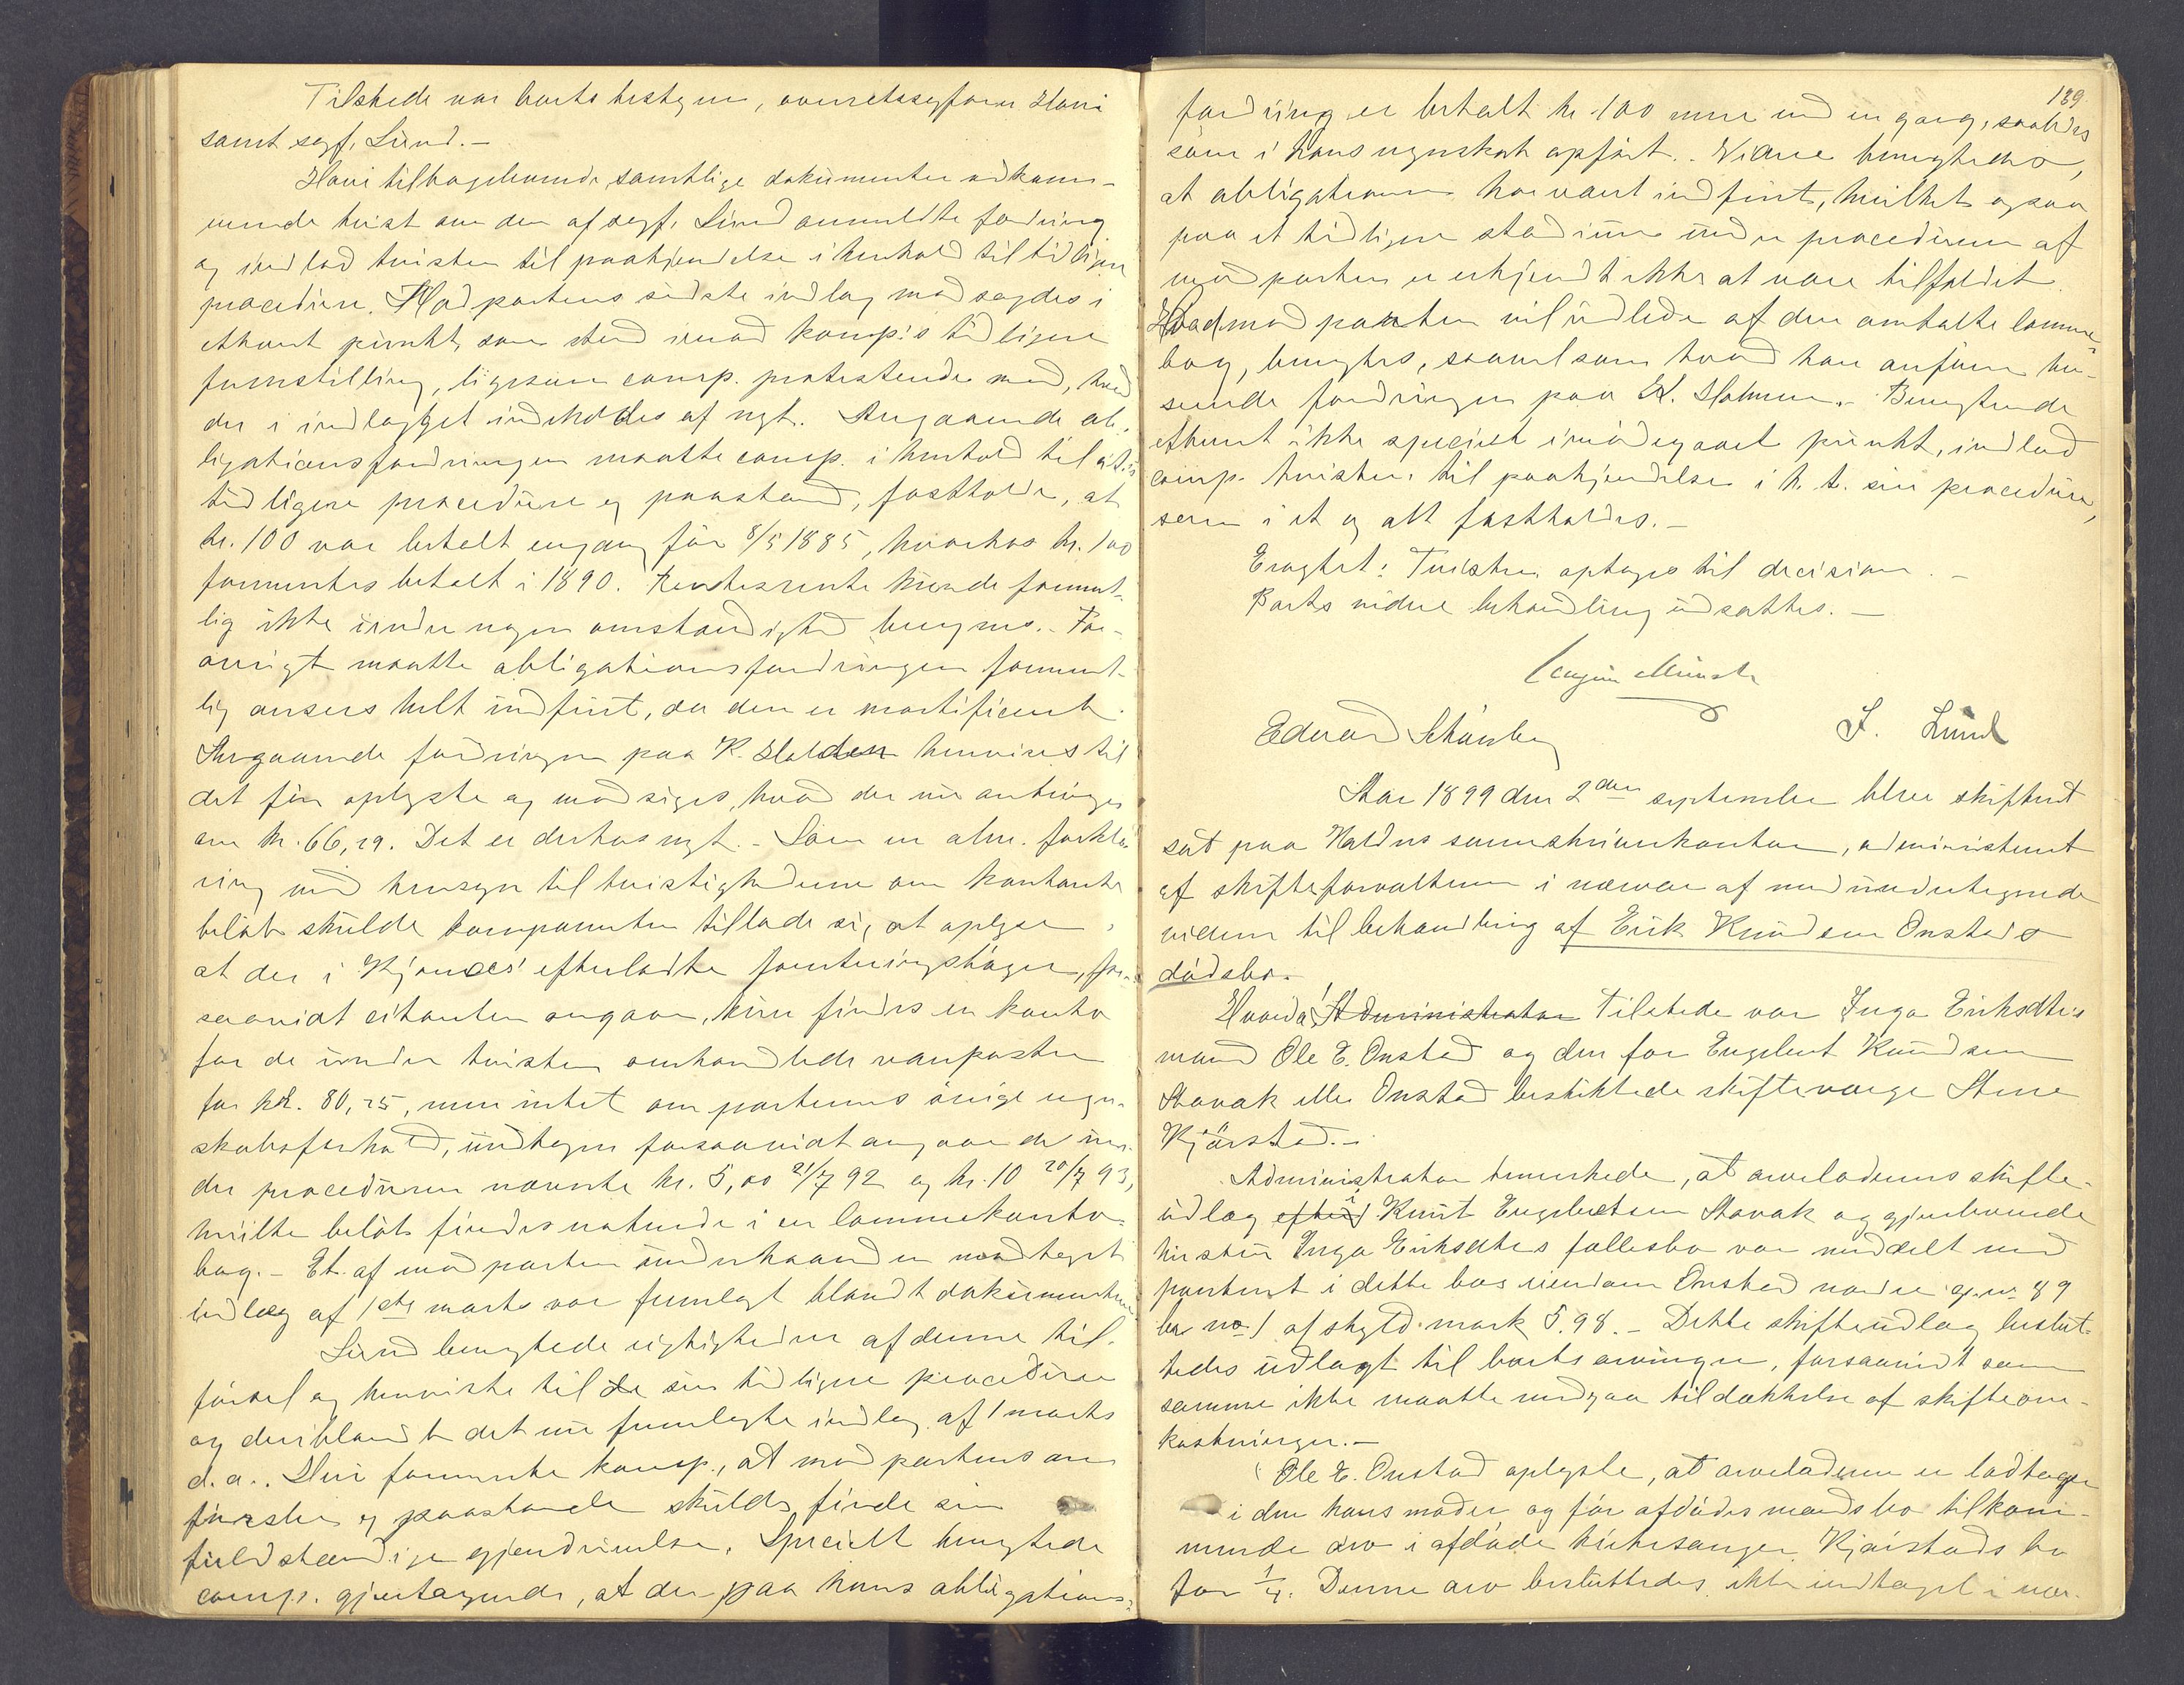 Tilstede var boets bestyrer, overretssagfører Hovi
samt sagf. Lund.-
Hovi tilbageleverede samtlige dokumenter vedkom-
mende tvist om den af sagf. Lund anmeldte fordring
og indlod tvisten til paakjendelse i henhold til tidligere
procedure. Modpartens sidste indlæg modsagdes i
ethvert punkt, som stod imod komp.'s tidligere
fremstilling, ligesom comp. protesterede mod, hvad
der i indlægget indeholdes af nyt. Angaaende ob-
ligationsfordringen maatte comp. i henhold til sit
tidligere procedure og paastand, fastholde, at
kr. 100 var betalt engang før 8/5 1885, hvorhos kr. 100
formentes betalt i 1890. Rentesrente kunde forment-
lig ikke under nogen omstændighed beregnes.- For-
øvrigt maatte obligationsfordringen forment-
lig ansees helt indfriet, da den er mortificeret.
Angaaende fordringen paa K. Holden henvises til
det før oplyste og modsiges, hvad der nu anbringes
om kr. 66,29. Det er derhos nyt.- Som en alm. forkla-
ring med hensyn til tvistighederne om kontante
beløb skulde komparenten tillade sig at oplyse,
at der i efterladte forretningsbøger, for-
saavidt citanten angaar, kun findes en konto
for de under tvisten omhandlede vareposter
for kr. 80,25, men intet om parternes øvrige regn-
skabsforhold, undtagen forsaavidt angaar de un-
der proceduren nævnte kr. 5,00 21/7 92 og kr. 10 20/7 93,
hvilke beløb findes noterede i en lommekonto-
bog.- Et af modparten underhaanden modtaget
indlæg af 1ste marts var fremlagt blandt dokumenterne
Lund benegtede rigtigheden af denne til-
førsel og henviste til de sin tidligere procedure
og deriblandt det nu fremlagte indlæg af 1 marts
d.a.. Heri formente komp., at modpartens an-
førsler og paastande skulde finde sin
fuldstændige gjendrivelse. Specielt benegtede
comp. gjentagende, at der paa hans obligations-
139.
fordring er betalt kr 100 mere end en gang, saaledes
som i hans regnskab opført.. Videre benegtedes,
at obligationen har været indfriet, hvilket ogsaa
paa et tidligere stadium under proceduren af
modparten er erkjendt ikke at være tilfældet.
Hvad modparten vil udlede af den omtalte lomme-
bog, benegtes, saavelsom hvad han anfører hen-
seende fordringen paa K. Holmen.- Benegtende
ethvert ikke specielt imødegaaet punkt, indlod
comp. tvisten til paakjendelse i h. t. sin procedure,
som i et og alt fastholdes.-
Eragtet: Tvisten optages til decision.-
Boets videre behandling udsattes.-
Edvard Schønberg
J. Lund
Aar 1899 den 2den september blev skifteret
sat paa Valdres sorenskriverkontor, administreret
af skifteforvalteren i nærvær af medundertegnede
vidner til behandling af Erik Knudsen Onstads
dødsbo.-
Hvorda! Administrator Tilstede var Inga Eriksdtrs
mand Ole E. Onstad og den for Engebret Knudsen
Stavak eller Onstad beskikkede skifteværge Arne
Kjørstad.-
Administrator bemerkede, at arveladerens skifte-
udlæg efter i Knut Engebretsen Stavak og gjenlevende
hustru Inga Eriksdtrs fællesbo var meddelt med
panteret i dette boes eiendom Onstad nordre g.no 89
br no 1 af skyld mark 5.98.- Dette skifteudlæg beslut-
tedes udlagt til boets arvinger, forsaavidt som
samme ikke maatte medgaa til dækkelse af skifteom-
kostninger.-
Ole E. Onstad oplyste, at arveladeren er lodtager
i den hans moder og før afdødes mands bo tilkom-
mende arv i afdøde kirkesanger Kjørstads bo
for 1/4. Denne arv besluttedes ikke indtaget i nær-